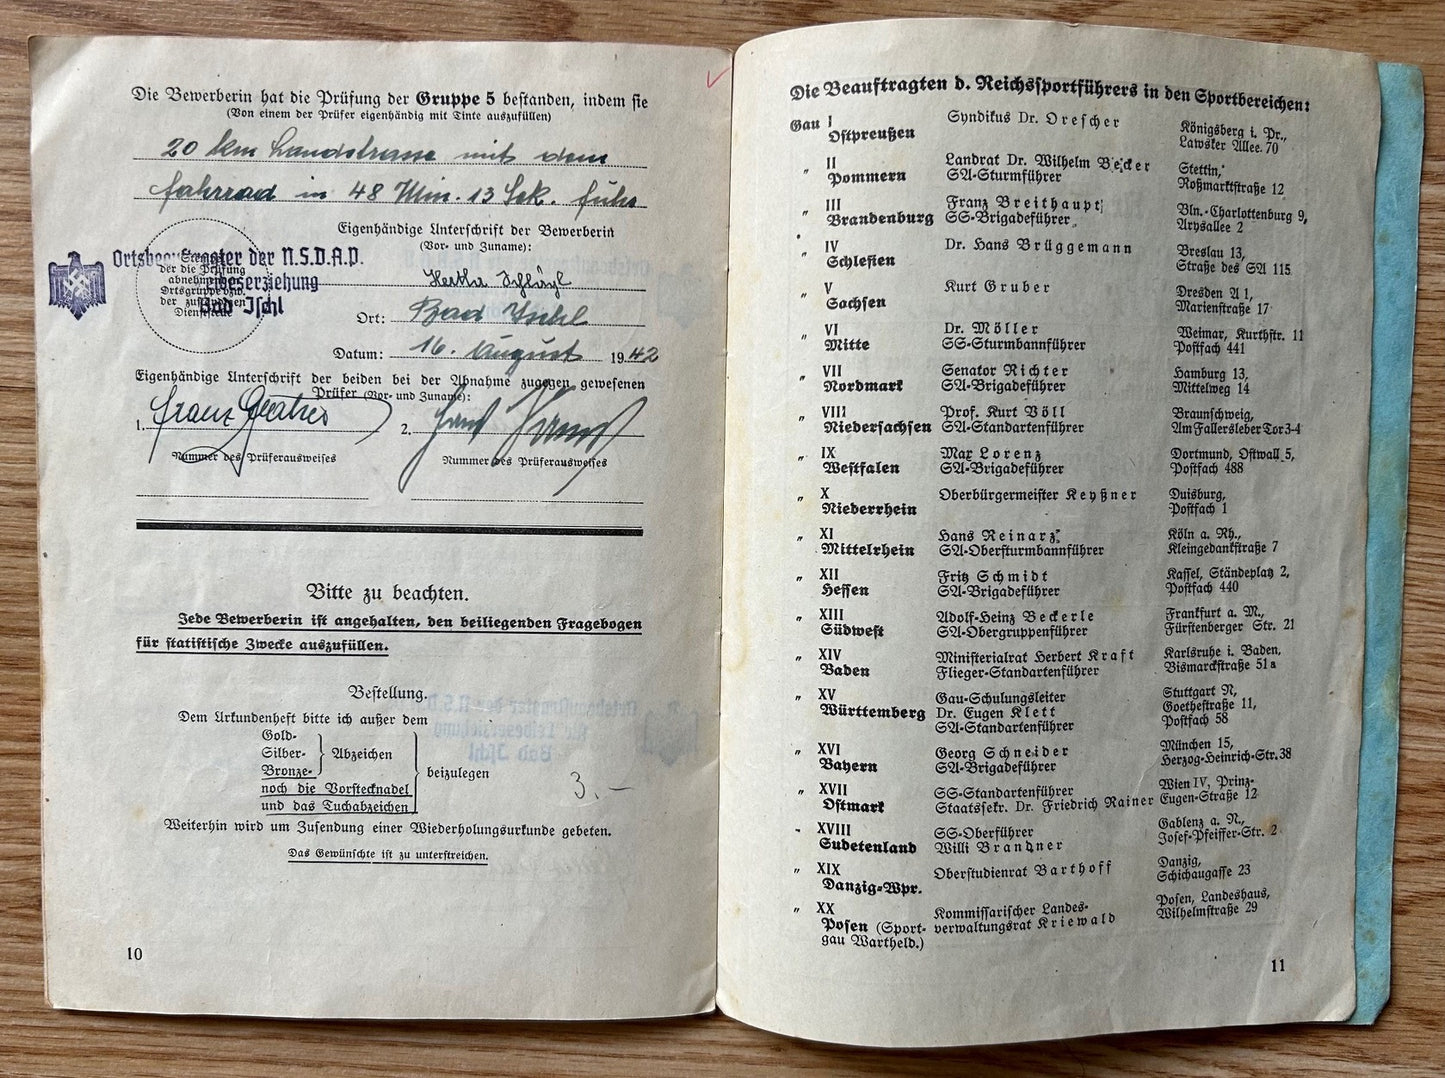 Die Bewerberin hat die Prüfung der Gruppe 5 bestanden, indem sie
(Von einem der Prüfer eigenhändig mit Tinte auszufüllen)
20 km Landstrasse mit dem
Fahrrad in 48 Min. 13 Sek. fuhr
Eigenhändige Unterschrift der Bewerberin
(Vor- und Zuname):
Ortsbeauftragter der N.S.D.A.P.
Leibeserziehung
Bad Ischl
Stempel
der die Prüfung
abnehmenden
Ortsgruppe bzw.
der zuständigen
Dienststelle
Hertha
Ort: Bad Ischl
Datum: 16. August 1942
Eigenhändige Unterschrift der beiden bei der Abnahme zugegen gewesenen
Prüfer (Vor- und Zuname):
1. Franz 2. Hans
Nummer des Prüferausweises Nummer des Prüferausweises
Bitte zu beachten.
Jede Bewerberin ist angehalten, den beiliegenden Fragebogen
für statistische Zwecke auszufüllen.
Bestellung.
Dem Urkundenheft bitte ich außer dem
Gold-
Silber- Abzeichen
Bronze-
noch die Vorstecknadel
und das Tuchabzeichen
beizulegen
3.–
Weiterhin wird um Zusendung einer Wiederholungsurkunde gebeten.
Das Gewünschte ist zu unterstreichen.
10
Die Beauftragten d. Reichssportführers in den Sportbereichen:
Gau I Syndikus Dr. Drescher Königsberg i. Pr.,
Ostpreußen Lawsker Allee 70
„ II Landrat Dr. Wilhelm Becker Stettin,
Pommern SA-Sturmführer Roßmarktstraße 12
„ III Franz Breithaupt Bln.-Charlottenburg 9,
Brandenburg SS-Brigadeführer Arysallee 2
„ IV Dr. Hans Brüggemann Breslau 13,
Schlesien Straße des SA 115
„ V Kurt Gruber Dresden A 1,
Sachsen Marienstraße 17
„ VI Dr. Möller Weimar, Kurthstr. 11
Mitte SS-Sturmbannführer Postfach 441
„ VII Senator Richter Hamburg 13,
Nordmark SA-Brigadeführer Mittelweg 14
„ VIII Prof. Kurt Völl Braunschweig,
Niedersachsen SA-Standartenführer Am Fallersleber Tor 3-4
„ IX Max Lorenz Dortmund, Ostwall 5,
Westfalen SA-Brigadeführer Postfach 488
„ X Oberbürgermeister Keyßner Duisburg,
Niederrhein Postfach 1
„ XI Hans Reinarz Köln a. Rh.,
Mittelrhein SA-Obersturmbannführer Kleingedankstraße 7
„ XII Fritz Schmidt Kassel, Ständeplatz 2,
Hessen SA-Brigadeführer Postfach 440
„ XIII Adolf-Heinz Beckerle Frankfurt a. M.,
Südwest SA-Obergruppenführer Fürstenberger Str. 21
„ XIV Ministerialrat Herbert Kraft Karlsruhe i. Baden,
Baden Flieger-Standartenführer Bismarckstraße 51a
„ XV Gau-Schulungsleiter Stuttgart N,
Württemberg Dr. Eugen Klett Goethestraße 11,
SA-Standartenführer Postfach 58
„ XVI Georg Schneider München 15,
Bayern SA-Brigadeführer Herzog-Heinrich-Str. 38
„ XVII SS-Standartenführer Wien IV, Prinz-
Ostmark Staatssekr. Dr. Friedrich Rainer Eugen-Straße 12
„ XVIII SS-Oberführer Gablenz a. N.,
Sudetenland Willi Brandner Josef-Pfeiffer-Str. 2
„ XIX Oberstudienrat Barthoff Danzig,
Danzig-Wpr. Schichaugasse 23
„ XX Kommissarischer Landes- Posen, Landeshaus,
Posen (Sport- verwaltungsrat Kriewald Wilhelmstraße 29
gau Wartheld.)
11